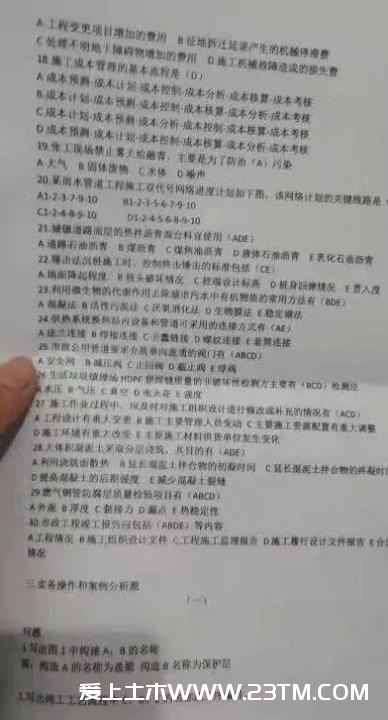 A 工程变更项目增加的费用 B 征地拆迁延误产生的机械停滞费
C 处理不明地下障碍物增加的费用 D 施工机械故障造成的损失费
18.施工成本管理的基本流程是（D）
A.成本预测-成本计划-成本控制-成本分析-成本核算-成本考核
B.成本计划-成本预测-成本控制-成本核算-成本分析-成本考核
C.成本预测-成本计划-成本分析-成本控制-成本核算-成本考核
D.成本预测-成本计划-成本控制-成本核算-成本分析-成本考核
19.施工现场禁止焚烧沥青，主要是为了防治（A）污染
A 大气 B 固体废物 C 水体 D 噪声
20.某雨水管道工程施工双代号网络进度计划如下图，该网络计划的关键线路是（
A1-2-3-7-9-10 B1-2-3-5-6-7-9-10
C1-2-4-8-9-10 D1-2-4-5-6-8-9-10
21.城镇道路面层的热拌沥青混合料宜使用（ADE）
A 道路石油沥青 B 煤沥青 C 煤焦油沥青 D 液体石油沥青 E 乳化石油沥青
22.锤击法沉桩施工时，控制终击锤击的标准包括（CE）
A 地面隆起程度 B 桩头破坏情况 C 桩端设计标高 D 桩身回弹情况 E 贯入度
23.利用微生物的代谢作用去除城市污水中有机物质的常用方法有（BDE）
A 混凝法 B 活性污泥法 C 厌氧消化法 D 生物膜法 E 稳定塘法
24.供热系统换热站内设备和管道可采用的连接方式有（AE）
A 法兰连接 B 焊接连接 C 卡套连接 D 螺纹连接 E 套筒连接
25 市政公用管道要求介质单向流通的阀门有（ABCD）
A 安全阀 B 减压阀 C 止回阀 D 截止阀 E 球阀
26 生活垃圾填埋场 HDPE 膜焊缝质量的非破坏性检测方法主要有（BCD）检测法
A 水压 B 气压 C 真空 D 电火花 E 强度
27 施工作业过程中，应及时对施工组织设计进行修改或补充的情况有（ACD）
A 工程设计有重大变更 B 施工主要管理人员变动 C 主要施工资源配置有重大调整
D 施工环境有重大改变 E 主要施工材料供货单位发生变化
28.大体积混泥土采取分层浇筑，其目的有（ADE）
A 利用浇筑面散热 B 延长混泥土拌合物的初凝时间 C 延长混泥土拌合物的终凝时
D 提高混凝土的后期强度 E 减少混凝土裂缝
29.燃气钢管防腐层质量检验项目有（ABCD）
A 外观 B 厚度 C 黏接力 D 漏点 E 热稳定性
30.市政工程竣工报告应包括（ABDE）等内容
A 工程情况 B 施工组织设计文件 C 工程施工监理报告 D 施工履行设计文件报告 E 合
情况
三.实务操作和案例分析题
（一）
问题
1 写出图 1 中构建 A，B 的名称
答：构造 A 的名称为盖梁 构造 B 名称为保护层
爱上土木WWW.23TM.COM